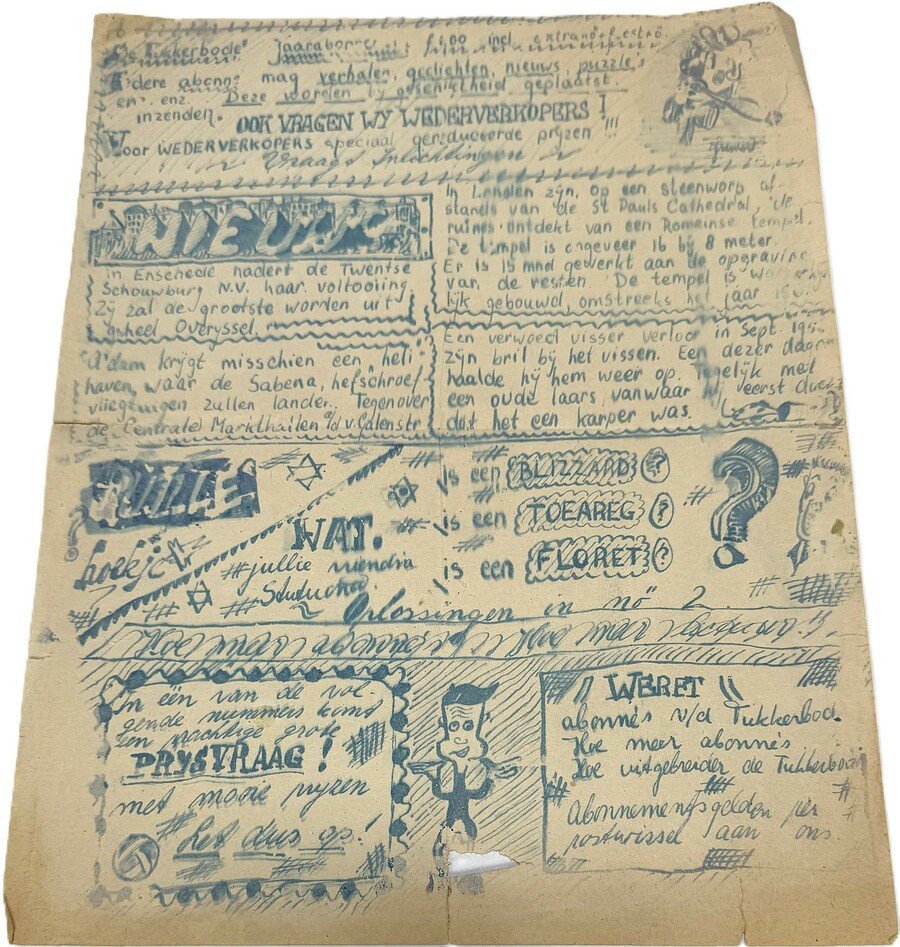 De Tukkerbode Jaarabonne f 1.00 incl. extra
Iedere abonné mag verhalen, gedichten, nieuws, puzzle's
enz. enz. Deze worden by geschiktheid geplaatst.
inzenden. OOK VRAGEN WY WEDERVERKOPERS!
Voor WEDERVERKOPERS speciaal gereduceerde pryzen !!!
Vraagt Inlichtingen
NIEUWS
in Enschede nadert de Twentse
Schouwburg N.V. haar voltooiing
Zy zal de grootste worden uit
geheel Overyssel.
A'dam krygt misschien een heli-
haven, waar de Sabena, hefschroef
vliegtuigen zullen landen. Tegenover
de Centrale Markthallen a/d v. Galenstr
In Londen zijn, op een steenworp af-
stands van de St Pauls Cathedral, de
ruines ontdekt van een Romeinse tempel.
De tempel is ongeveer 16 by 8 meter.
Er is 15 mnd gewerkt aan de opgraving
van de resten. De tempel is
lijk gebouwd, omstreeks het jaar
Een verwoed visser verloor in Sept. 195
zijn bril bij het vissen. Een dezer dagen
haalde hij hem weer op. Tegelijk met
een oude laars, vanwaar hij eerst
dat het een karper was.
hoekje
WAT.
jullie
is een BLIZZARD ?
is een TOEAREG ?
is een FLORET ?
Oplossingen in no 2
Hoe meer abonné's Hoe meer
In één van de vol-
gende nummers komt
een prachtige grote
PRYSVRAAG!
met mooie pryzen
Let dus op!
WERFT
abonné's v/d Tukkerbode
Hoe meer abonné's
Hoe uitgebreider de Tukkerbode
Abonnementsgelden per
postwissel aan ons.